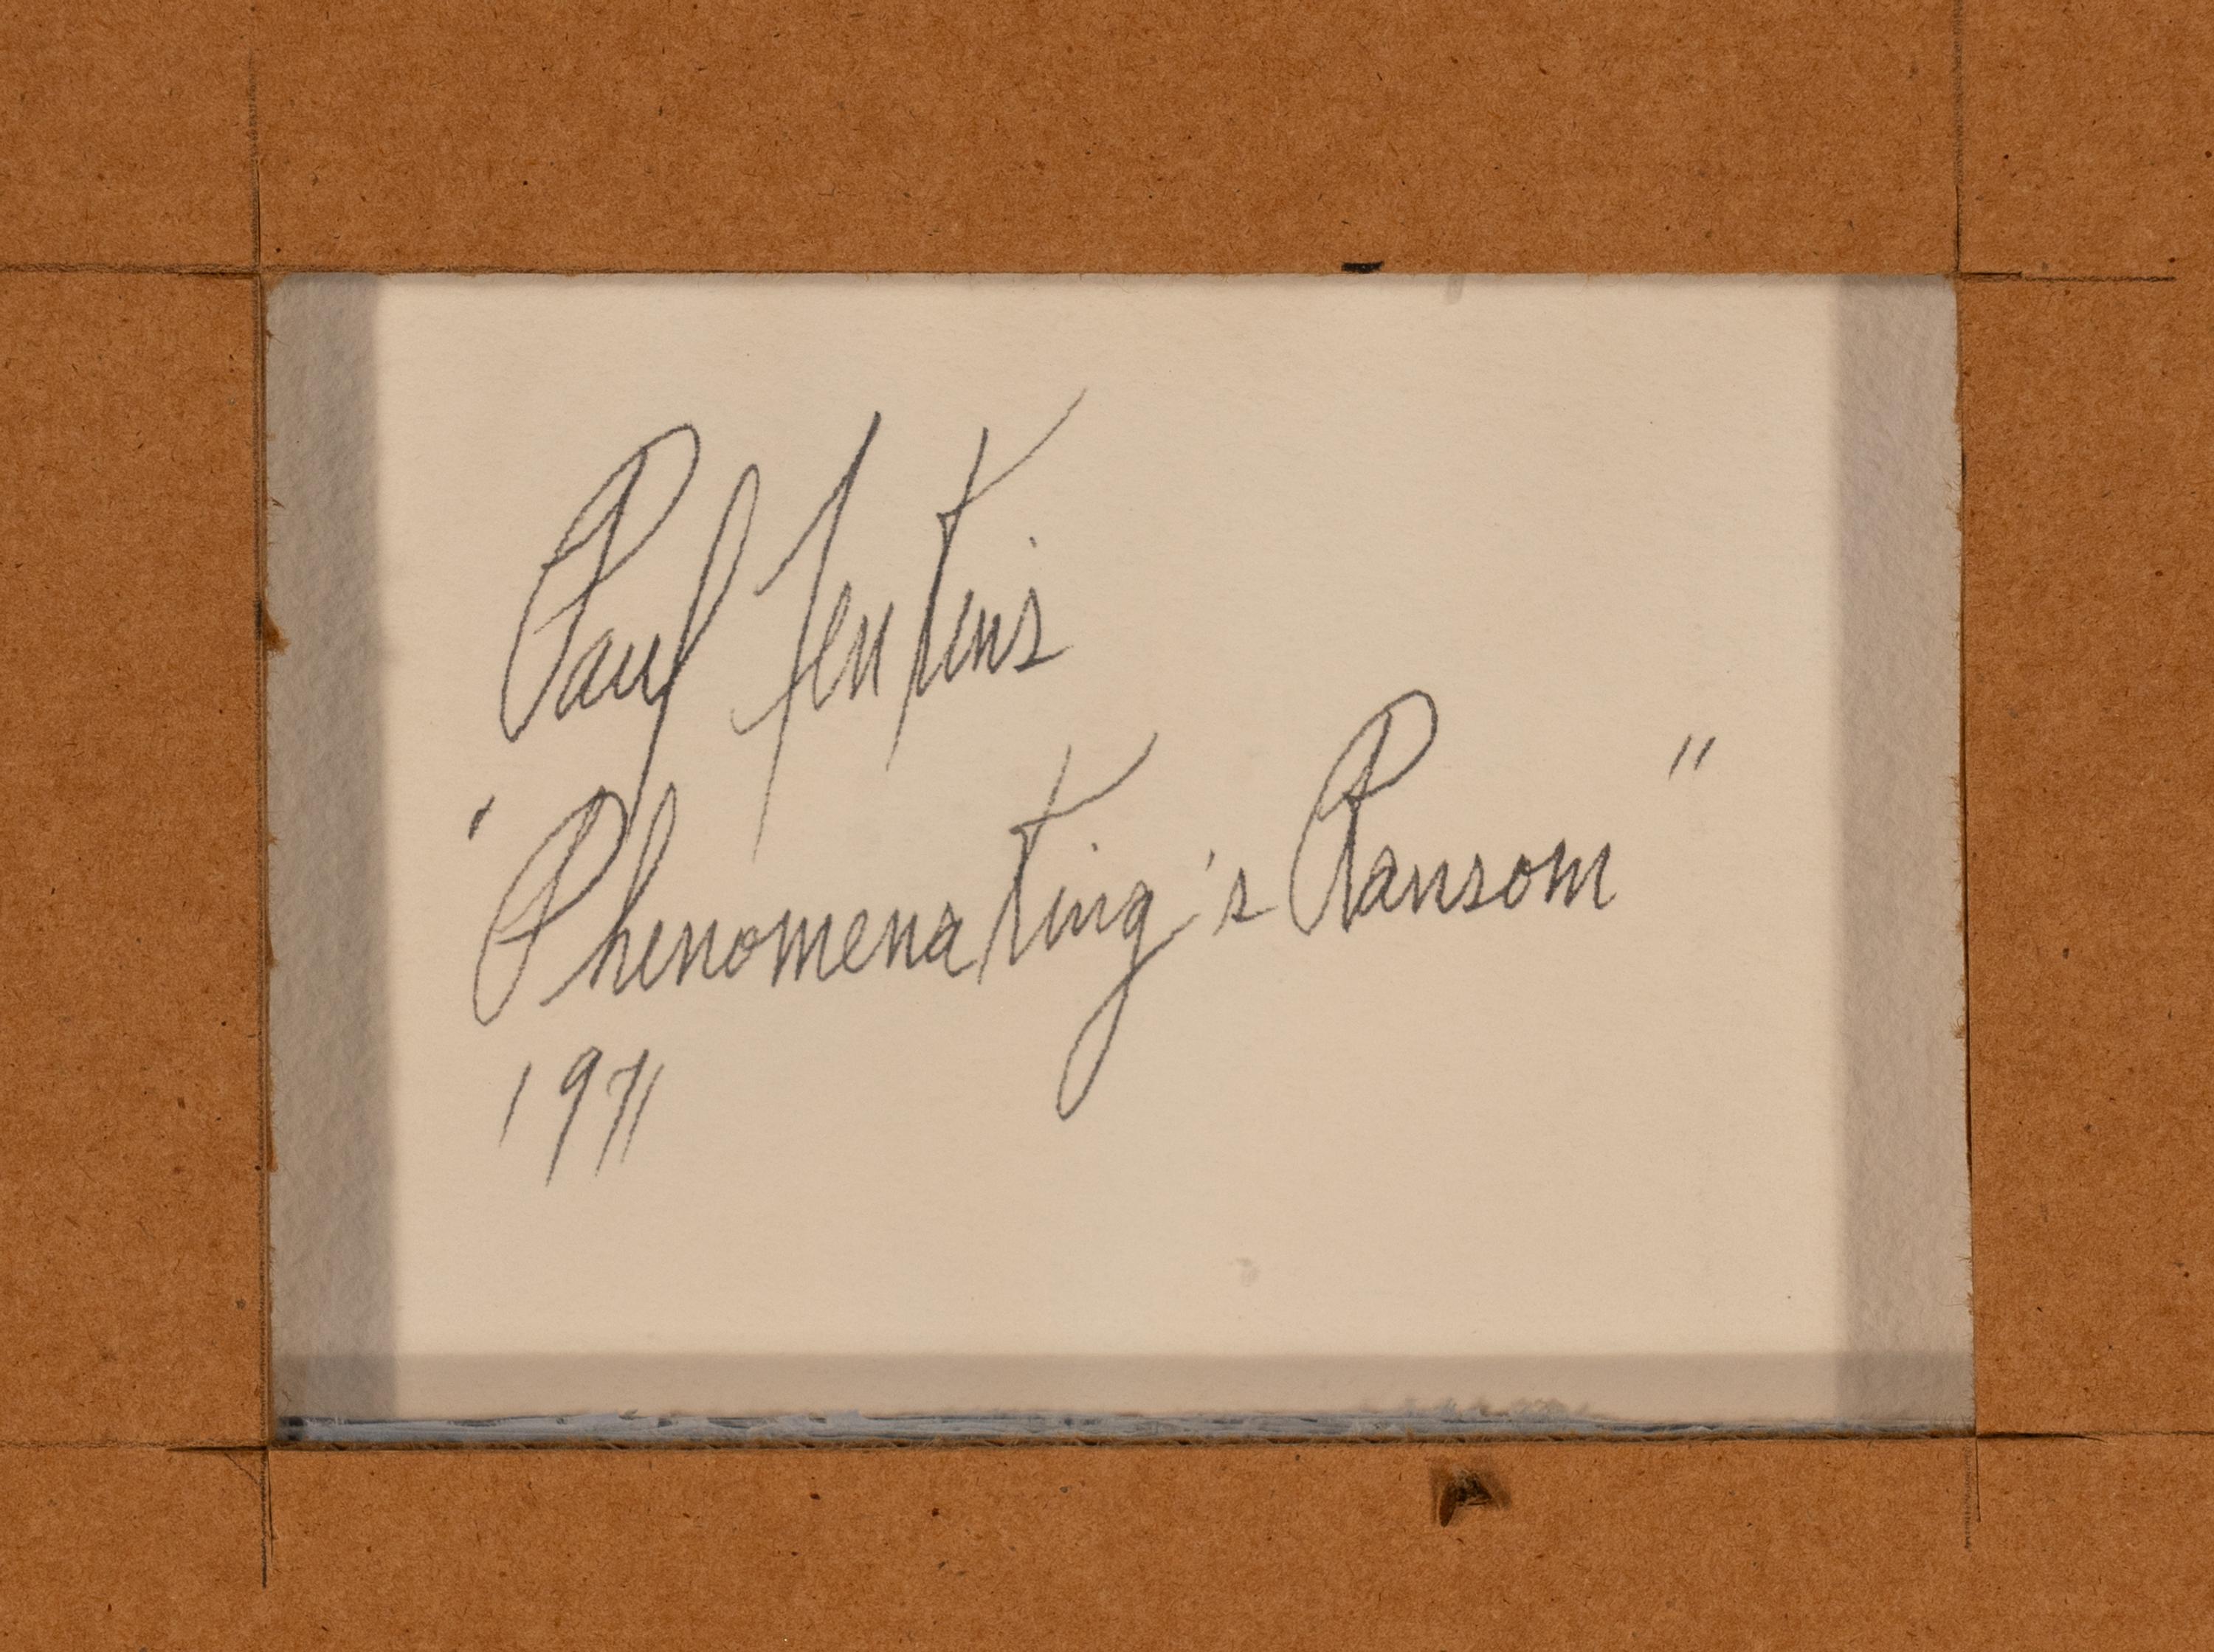 Paul Jenkins
"Phenomena King's Ransom"
1971